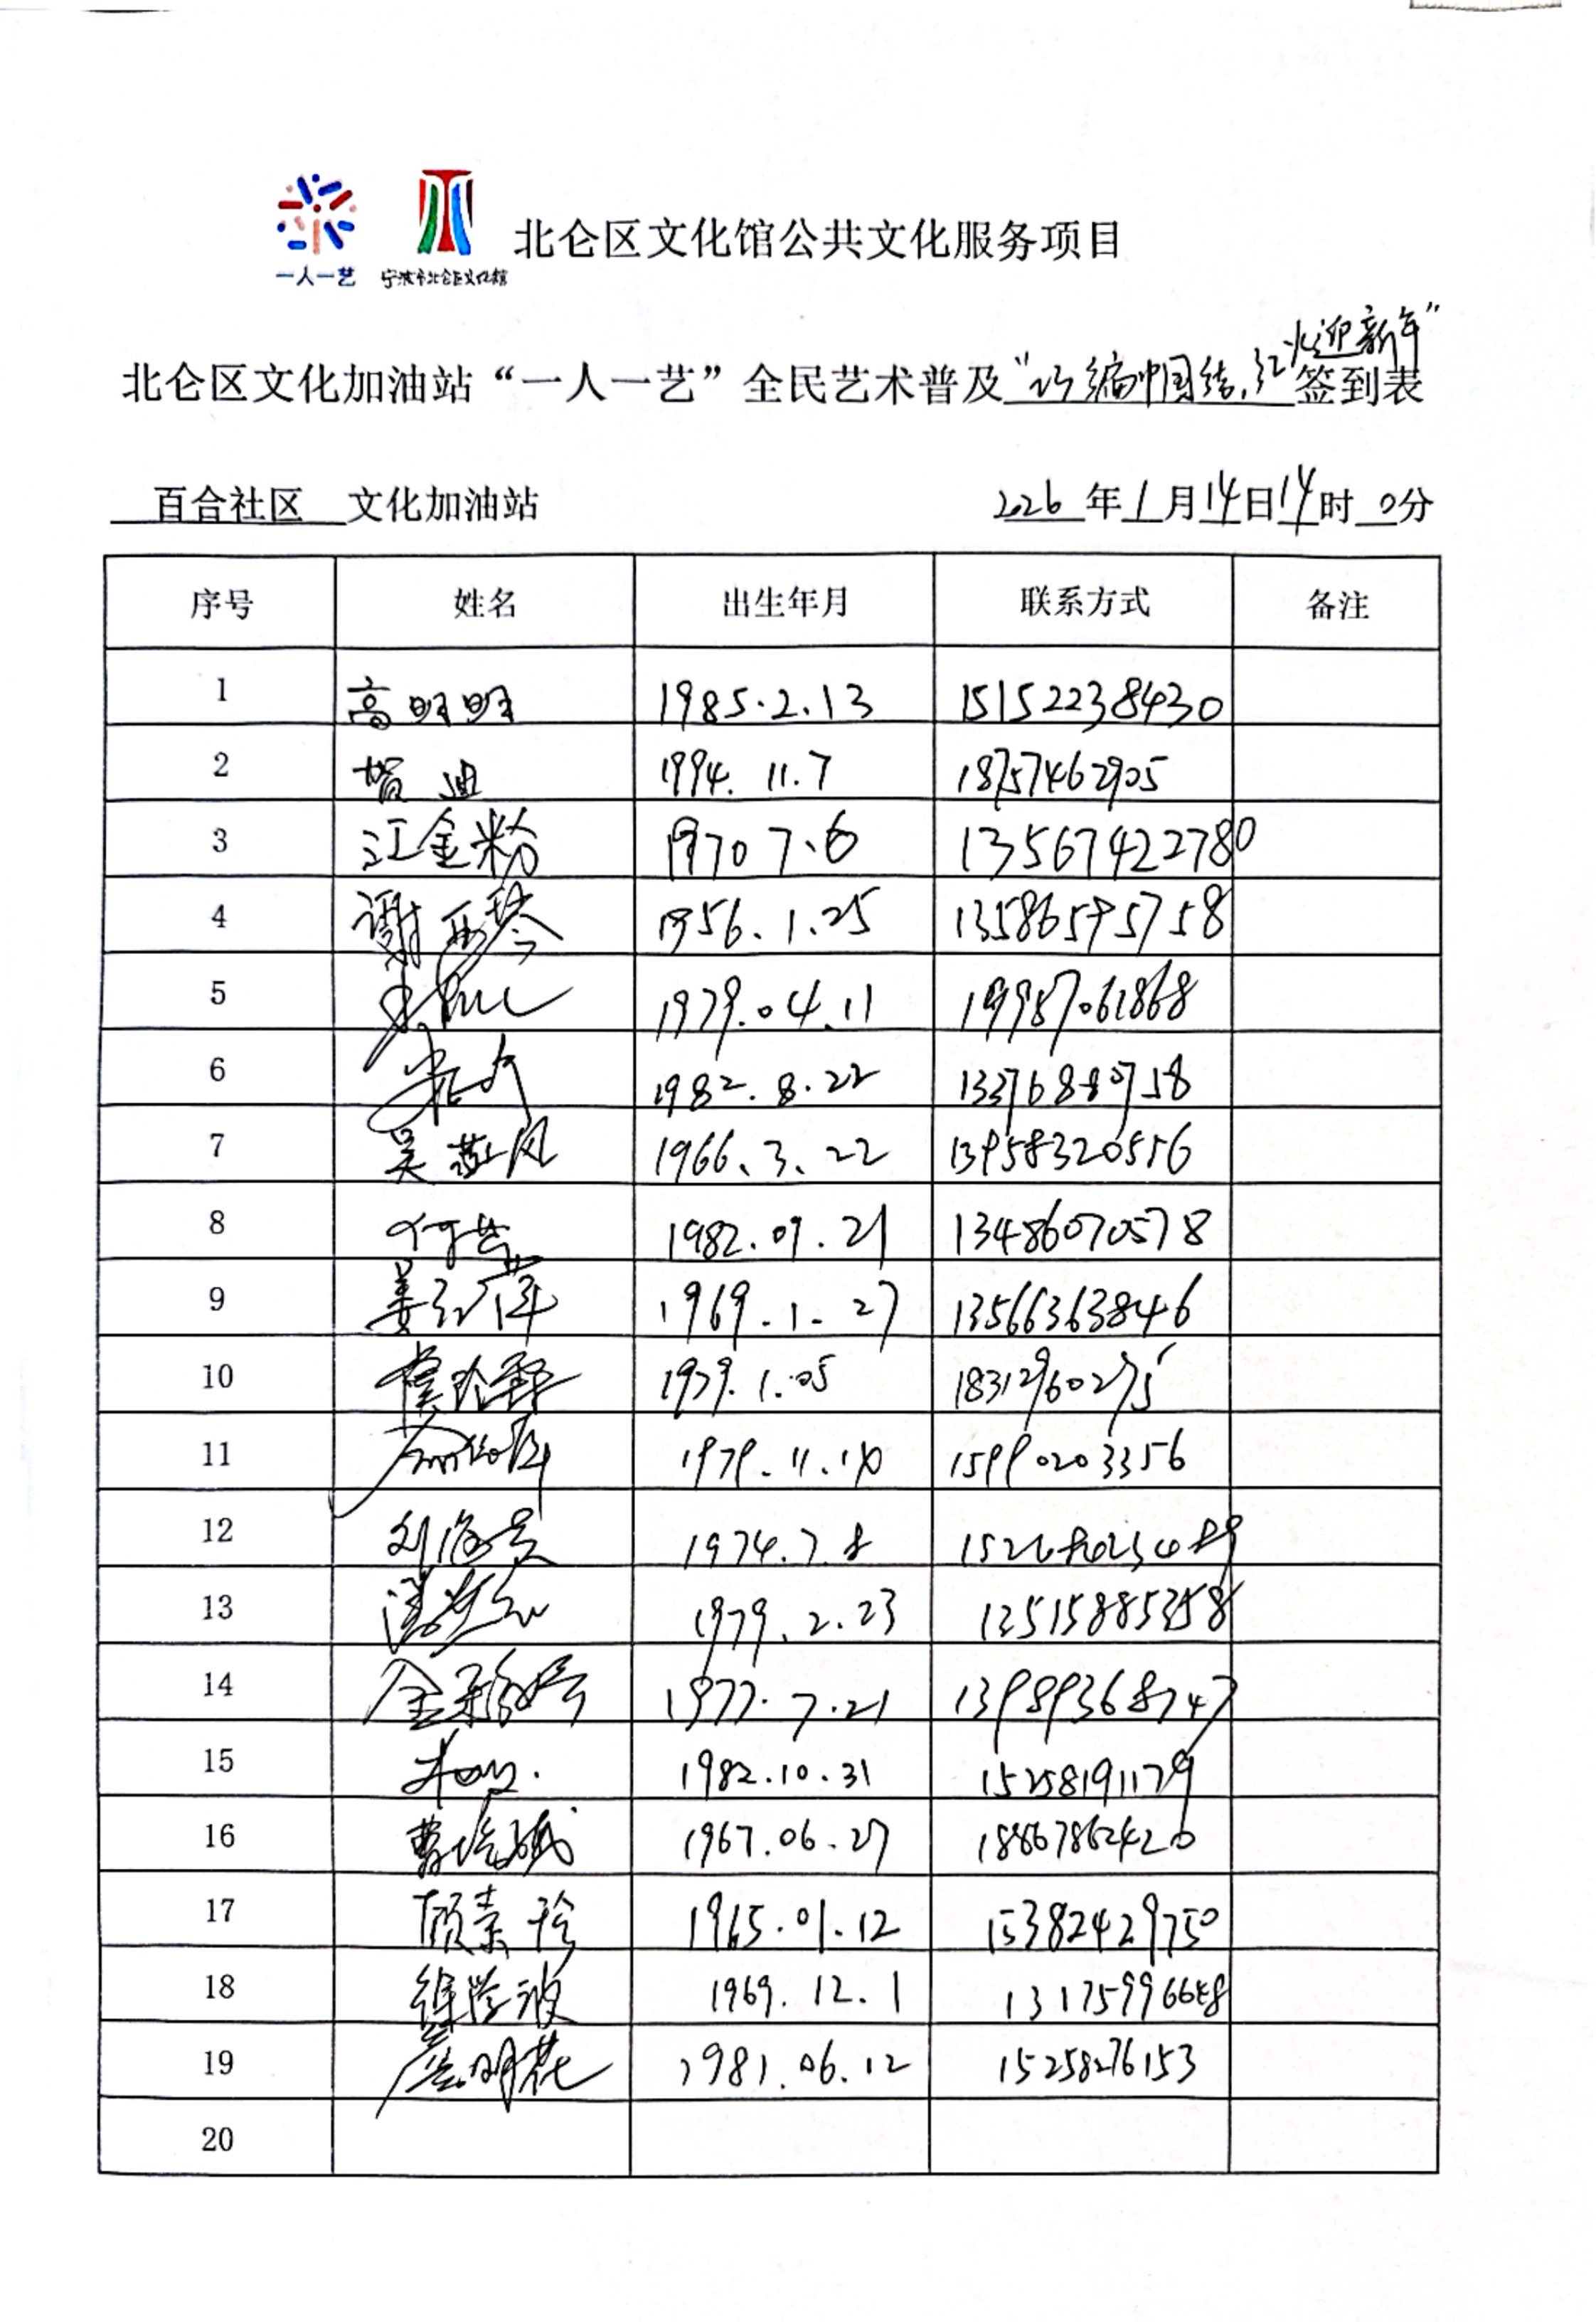 一人一艺
宁波市北仑区文化馆
北仑区文化馆公共文化服务项目
北仑区文化加油站“一人一艺”全民艺术普及“巧编中国结,红火迎新年”签到表
百合社区 文化加油站 2026年1月14日14时0分
序号 姓名 出生年月 联系方式 备注
1 高明明 1985.2.13 15152238430
2 贺迪 1994.11.7 18757462905
3 江金粉 1970 7.6 13567422780
4 谢亚琴 1956.1.25 13586595758
5 1979.04.11 19957061868
6 1982.8.22 13376880758
7 吴燕风 1966.3.22 13958320556
8 何芸 1982.09.21 13486070578
9 姜红萍 1969.1.27 13566363846
10 1979.1.05 18312960275
11 1979.11.10 15990203356
12 刘海英 1974.7.8
13 1979.2.23 13515885358
14 1977.7.21 13989368747
15 1982.10.31 15258191179
16 1967.06.27 18867862420
17 顾素珍 1965.01.12 15382429750
18 徐学波 1969.12.1 13175996668
19 詹明花 1981.06.12 15258276153
20